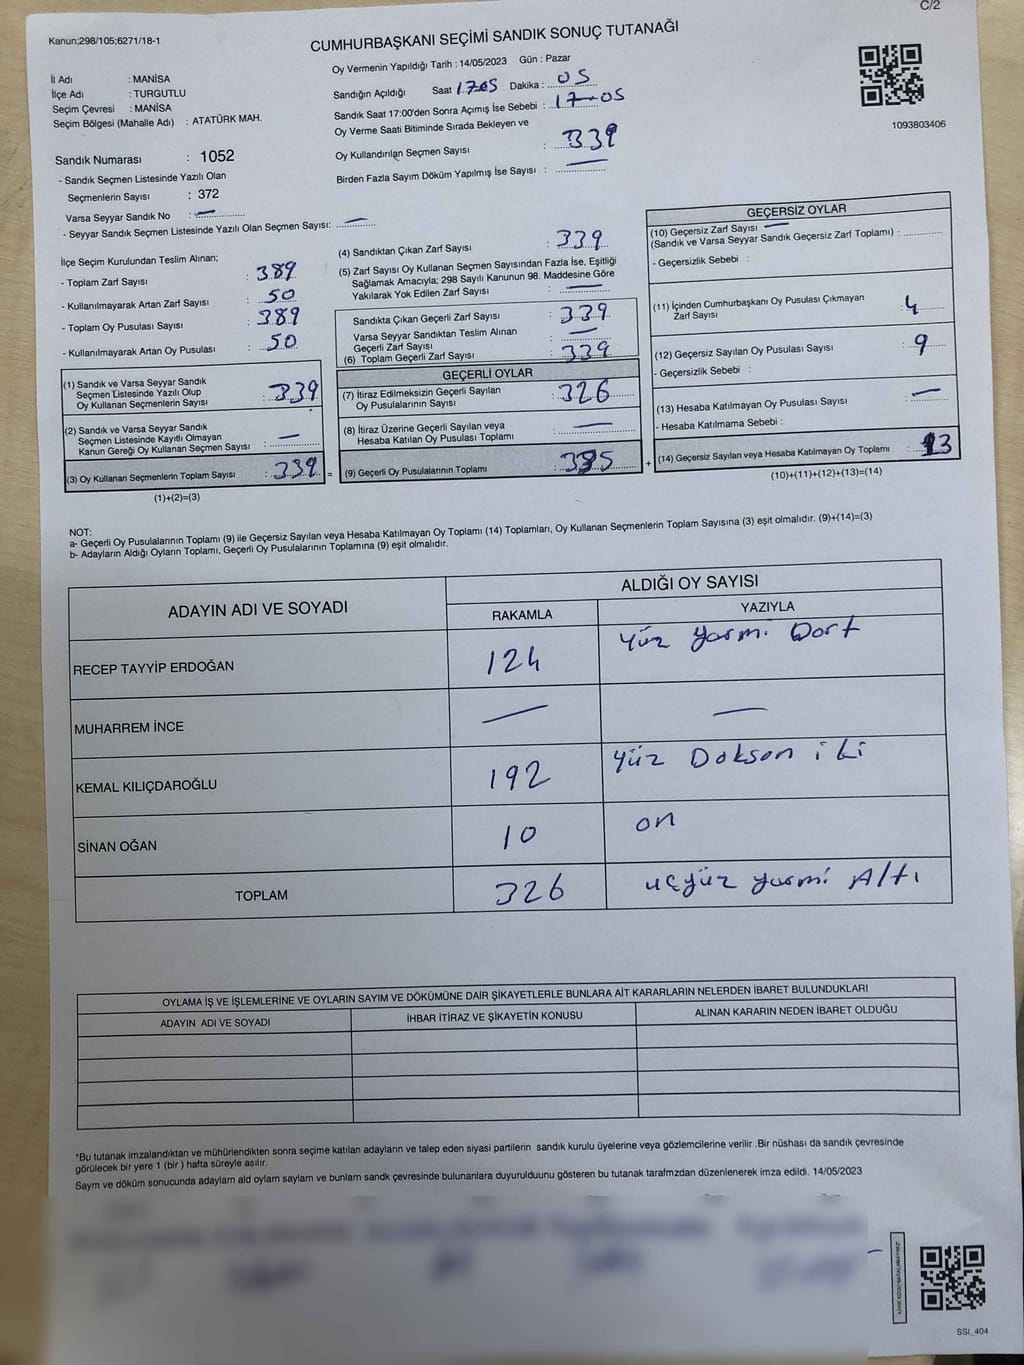 C/2
Kanun;298/105;6271/18-1
CUMHURBAŞKANI SEÇİMİ SANDIK SONUÇ TUTANAĞI
İl Adı : MANİSA
İlçe Adı : TURGUTLU
Seçim Çevresi : MANİSA
Seçim Bölgesi (Mahalle Adı) : ATATÜRK MAH.
Oy Vermenin Yapıldığı Tarih : 14/05/2023 Gün : Pazar
Sandığın Açıldığı Saat 1705 Dakika : 05
Sandık Saat 17:00'den Sonra Açımış İse Sebebi : 17-05
Oy Verme Saati Bitiminde Sırada Bekleyen ve
Oy Kullandırılan Seçmen Sayısı : 339
Birden Fazla Sayım Döküm Yapılmış İse Sayısı : —
1093803406
Sandık Numarası : 1052
- Sandık Seçmen Listesinde Yazılı Olan
Seçmenlerin Sayısı : 372
Varsa Seyyar Sandık No : —
- Seyyar Sandık Seçmen Listesinde Yazılı Olan Seçmen Sayısı: —
İlçe Seçim Kurulundan Teslim Alınan;
- Toplam Zarf Sayısı : 389
- Kullanılmayarak Artan Zarf Sayısı : 50
- Toplam Oy Pusulası Sayısı : 389
- Kullanılmayarak Artan Oy Pusulası : 50
(1) Sandık ve Varsa Seyyar Sandık
Seçmen Listesinde Yazılı Olup
Oy Kullanan Seçmenlerin Sayısı : 339
(2) Sandık ve Varsa Seyyar Sandık
Seçmen Listesinde Kayıtlı Olmayan
Kanun Gereği Oy Kullanan Seçmen Sayısı : —
(3) Oy Kullanan Seçmenlerin Toplam Sayısı : 339 =
(1)+(2)=(3)
(4) Sandıktan Çıkan Zarf Sayısı : 339
(5) Zarf Sayısı Oy Kullanan Seçmen Sayısından Fazla İse, Eşitliği
Sağlamak Amacıyla; 298 Sayılı Kanunun 98. Maddesine Göre
Yakılarak Yok Edilen Zarf Sayısı : —
Sandıkta Çıkan Geçerli Zarf Sayısı : 339
Varsa Seyyar Sandıktan Teslim Alınan
Geçerli Zarf Sayısı : —
(6) Toplam Geçerli Zarf Sayısı : 339
GEÇERLİ OYLAR
(7) İtiraz Edilmeksizin Geçerli Sayılan
Oy Pusulalarının Sayısı : 326
(8) İtiraz Üzerine Geçerli Sayılan veya
Hesaba Katılan Oy Pusulası Toplamı : —
(9) Geçerli Oy Pusulalarının Toplamı : +
GEÇERSİZ OYLAR
(10) Geçersiz Zarf Sayısı —
(Sandık ve Varsa Seyyar Sandık Geçersiz Zarf Toplamı) :
- Geçersizlik Sebebi :
(11) İçinden Cumhurbaşkanı Oy Pusulası Çıkmayan
Zarf Sayısı : 4
(12) Geçersiz Sayılan Oy Pusulası Sayısı : 9
- Geçersizlik Sebebi :
(13) Hesaba Katılmayan Oy Pusulası Sayısı : —
- Hesaba Katılmama Sebebi :
(14) Geçersiz Sayılan veya Hesaba Katılmayan Oy Toplamı : 13
(10)+(11)+(12)+(13)=(14)
NOT:
a- Geçerli Oy Pusulalarının Toplamı (9) ile Geçersiz Sayılan veya Hesaba Katılmayan Oy Toplamı (14) Toplamları, Oy Kullanan Seçmenlerin Toplam Sayısına (3) eşit olmalıdır. (9)+(14)=(3)
b- Adayların Aldığı Oyların Toplamı, Geçerli Oy Pusulalarının Toplamına (9) eşit olmalıdır.
ADAYIN ADI VE SOYADI
ALDIĞI OY SAYISI
RAKAMLA YAZIYLA
RECEP TAYYİP ERDOĞAN 124 Yüz yirmi Dört
MUHARREM İNCE — —
KEMAL KILIÇDAROĞLU 192 Yüz Doksan iki
SİNAN OĞAN 10 on
TOPLAM 326 üçyüz yirmi Altı
OYLAMA İŞ VE İŞLEMLERİNE VE OYLARIN SAYIM VE DÖKÜMÜNE DAİR ŞİKAYETLERLE BUNLARA AİT KARARLARIN NELERDEN İBARET BULUNDUKLARI
ADAYIN ADI VE SOYADI İHBAR İTİRAZ VE ŞİKAYETİN KONUSU ALINAN KARARIN NEDEN İBARET OLDUĞU
*Bu tutanak imzalandıktan ve mühürlendikten sonra seçime katılan adayların ve talep eden siyasi partilerin sandık kurulu üyelerine veya gözlemcilerine verilir .Bir nüshası da sandık çevresinde
görülecek bir yere 1 (bir ) hafta süreyle asılır.
Sayım ve döküm sonucunda adayların ald oyların saylam ve bunların sandk çevresinde bulunanlara duyurulduunu gösteren bu tutanak tarafmzdan düzenlenerek imza edildi. 14/05/2023
SSI_404